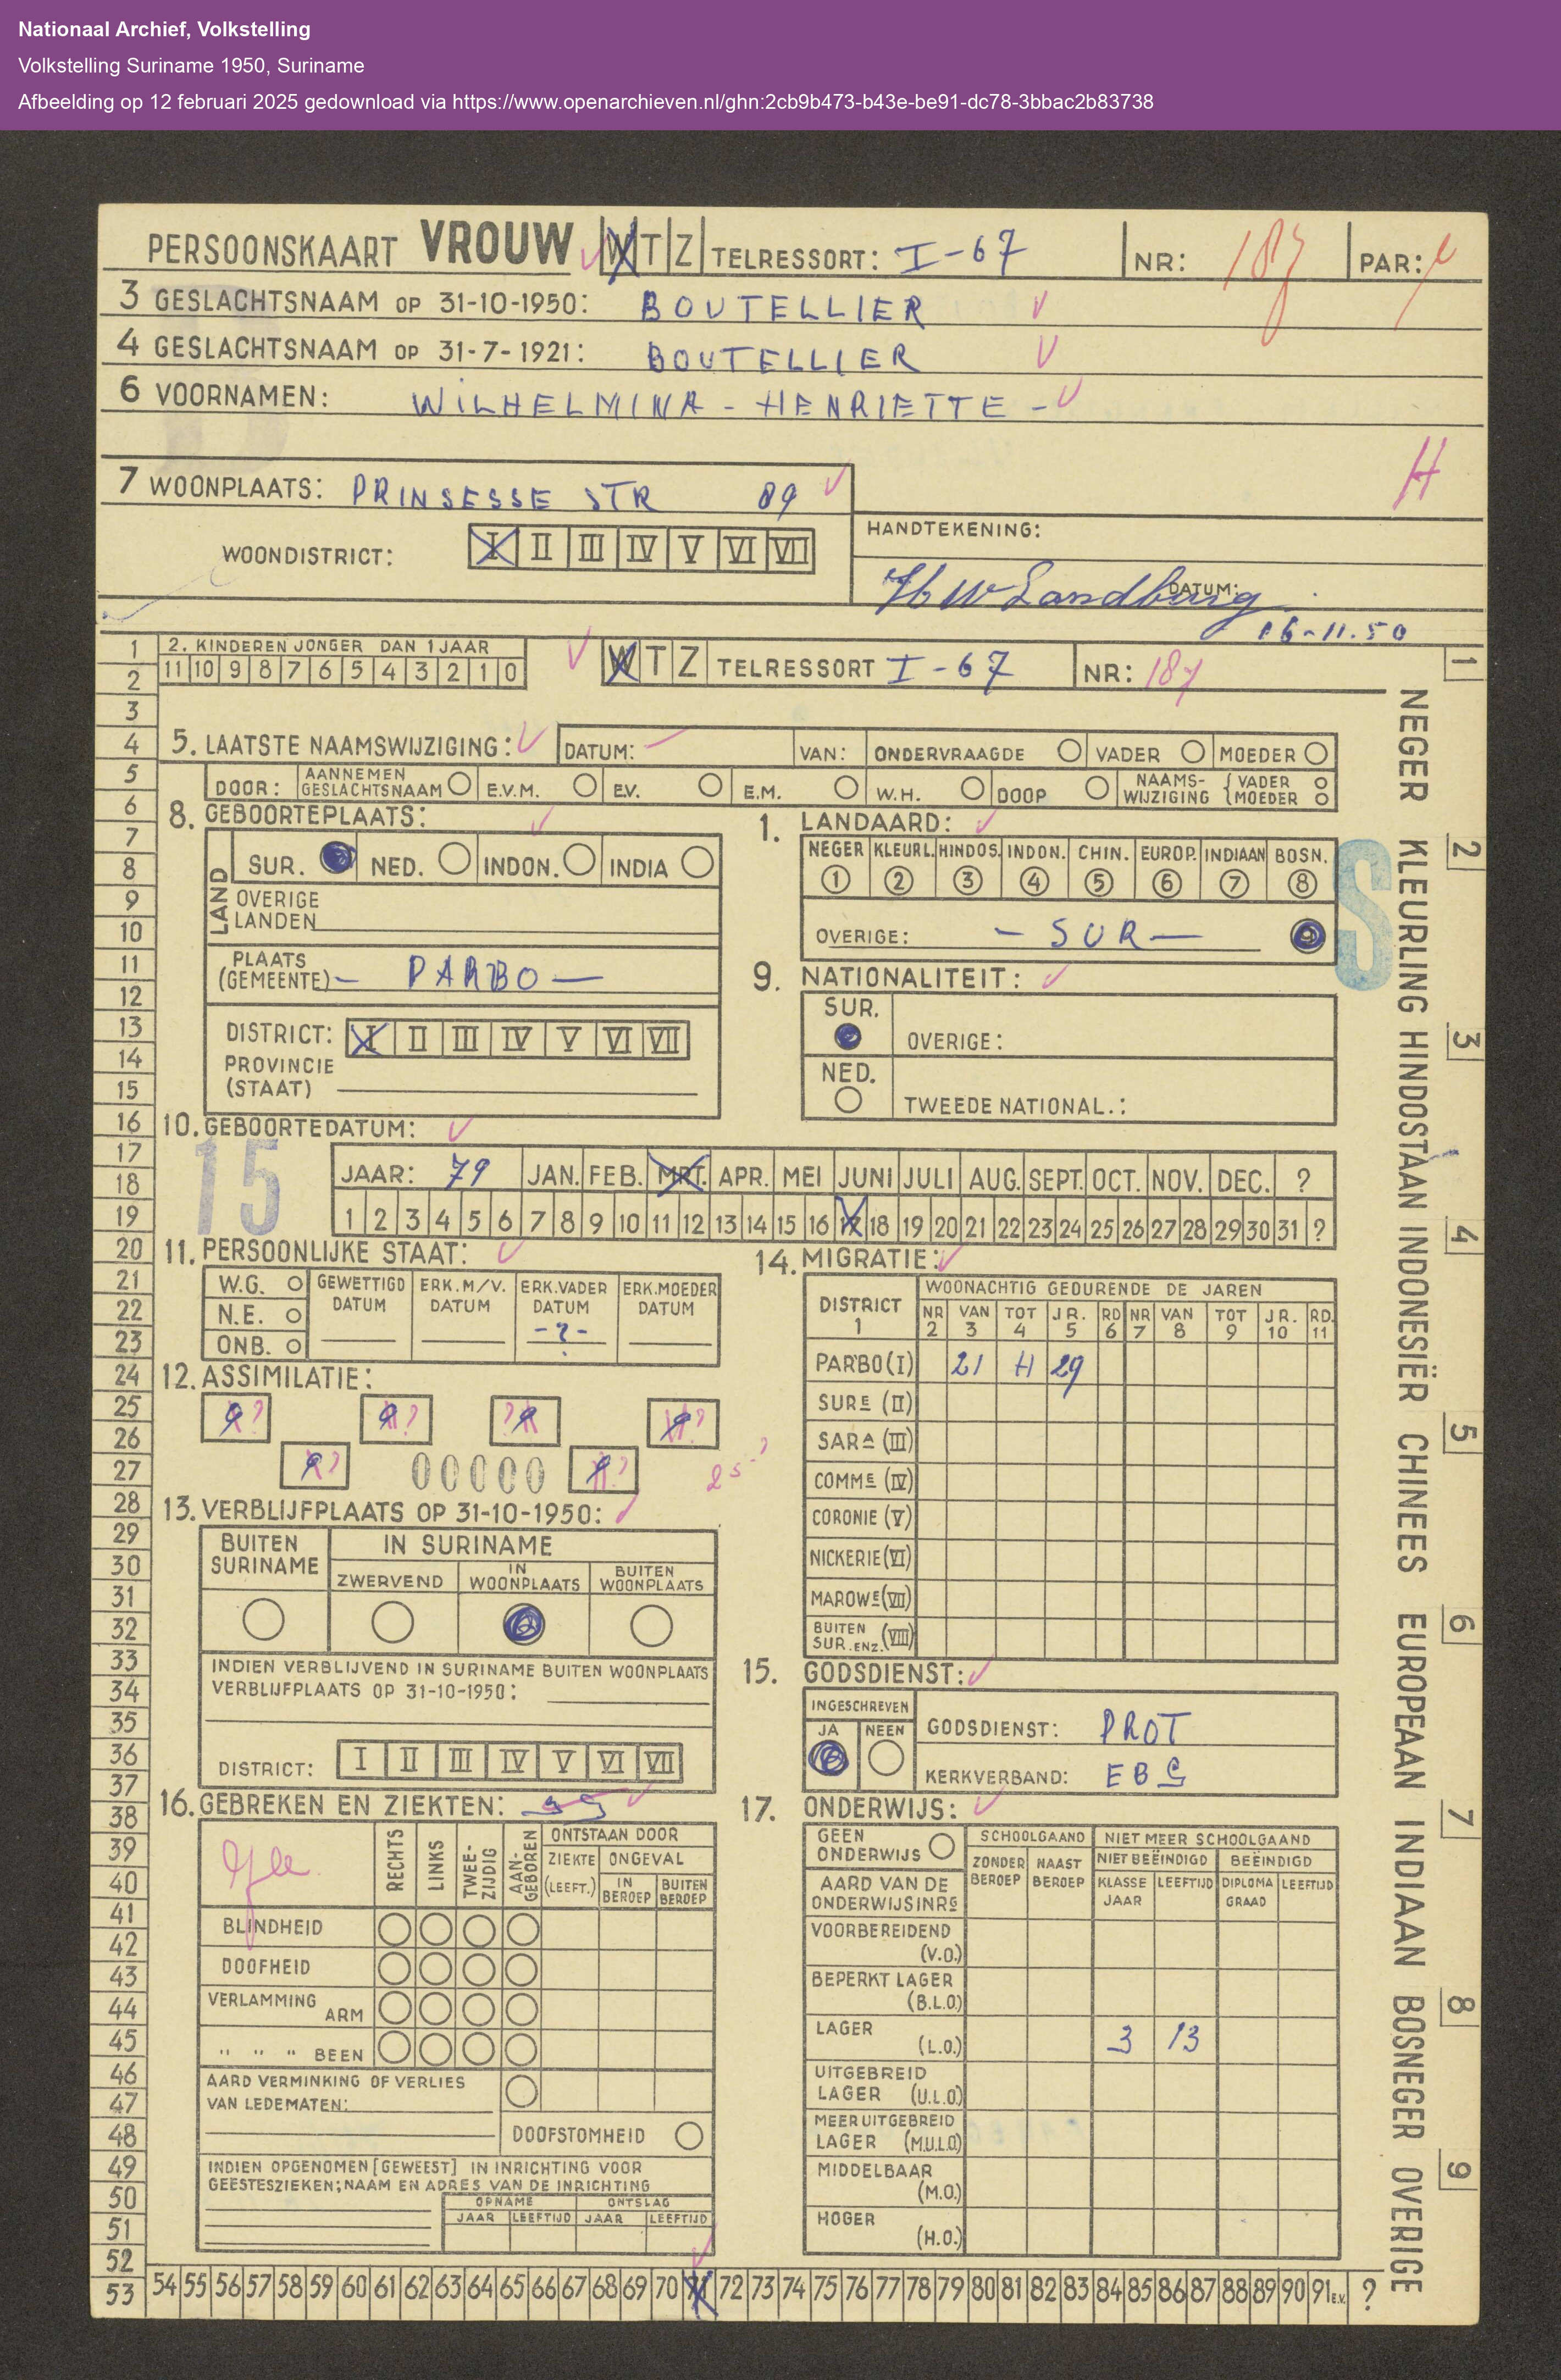 Nationaal Archief, Volkstelling
Volkstelling Suriname 1950, Suriname
Afbeelding op 12 februari 2025 gedownload via https://www.openarchieven.nl/ghn:2cb9b473-b43e-be91-dc78-3bbac2b83738
PERSOONSKAART VROUW W T Z TELRESSORT: I-67 NR: 187 PAR:
3 GESLACHTSNAAM OP 31-10-1950: BOUTELLIER
4 GESLACHTSNAAM OP 31-7-1921: BOUTELLIER
6 VOORNAMEN: WILHELMINA - HENRIETTE -
H
7 WOONPLAATS: PRINSESSE STR 89
HANDTEKENING:
WOONDISTRICT: I II III IV V VI VII
HW Landburg DATUM:
16-11.50
2. KINDEREN JONGER DAN 1 JAAR
11 10 9 8 7 6 5 4 3 2 1 0
W T Z TELRESSORT I-67 NR: 187
5. LAATSTE NAAMSWIJZIGING: DATUM: VAN: ONDERVRAAGDE VADER MOEDER
DOOR: AANNEMEN GESLACHTSNAAM E.V.M. E.V. E.M. W.H. DOOP NAAMS-WIJZIGING { VADER MOEDER
8. GEBOORTEPLAATS:
LAND SUR. NED. INDON. INDIA
OVERIGE LANDEN
PLAATS (GEMEENTE) - PARBO -
DISTRICT: I II III IV V VI VII
PROVINCIE (STAAT)
1. LANDAARD:
NEGER KLEURL. HINDOS. INDON. CHIN. EUROP. INDIAAN BOSN.
1 2 3 4 5 6 7 8
OVERIGE: - SUR - 9
S
9. NATIONALITEIT:
SUR. OVERIGE:
NED. TWEEDE NATIONAL.:
10. GEBOORTEDATUM:
15
JAAR: 79 JAN. FEB. MRT. APR. MEI JUNI JULI AUG. SEPT. OCT. NOV. DEC. ?
1 2 3 4 5 6 7 8 9 10 11 12 13 14 15 16 17 18 19 20 21 22 23 24 25 26 27 28 29 30 31 ?
11. PERSOONLIJKE STAAT:
W.G. GEWETTIGD DATUM ERK.M/V. DATUM ERK.VADER DATUM ERK.MOEDER DATUM
N.E. -?-
ONB.
12. ASSIMILATIE:
00000
13. VERBLIJFPLAATS OP 31-10-1950:
BUITEN SURINAME IN SURINAME
ZWERVEND IN WOONPLAATS BUITEN WOONPLAATS
INDIEN VERBLIJVEND IN SURINAME BUITEN WOONPLAATS
VERBLIJFPLAATS OP 31-10-1950:
DISTRICT: I II III IV V VI VII
14. MIGRATIE:
DISTRICT WOONACHTIG GEDURENDE DE JAREN
NR VAN TOT JR. RD NR VAN TOT JR. RD.
1 2 3 4 5 6 7 8 9 10 11
PARBO (I) 21 H 29
SURE (II)
SARA (III)
COMME (IV)
CORONIE (V)
NICKERIE (VI)
MAROWE (VII)
BUITEN SUR. ENZ. (VIII)
15. GODSDIENST:
INGESCHREVEN
JA NEEN GODSDIENST: PROT
KERKVERBAND: EBG
16. GEBREKEN EN ZIEKTEN:
RECHTS LINKS TWEE-ZIJDIG AAN-GEBOREN ONTSTAAN DOOR
ZIEKTE (LEEFT.) ONGEVAL
IN BEROEP BUITEN BEROEP
BLINDHEID
DOOFHEID
VERLAMMING ARM
" " " BEEN
AARD VERMINKING OF VERLIES
VAN LEDEMATEN:
DOOFSTOMHEID
INDIEN OPGENOMEN [GEWEEST] IN INRICHTING VOOR
GEESTESZIEKEN; NAAM EN ADRES VAN DE INRICHTING
OPNAME ONTSLAG
JAAR LEEFTIJD JAAR LEEFTIJD
17. ONDERWIJS:
GEEN ONDERWIJS SCHOOLGAAND NIET MEER SCHOOLGAAND
ZONDER BEROEP NAAST BEROEP NIET BEËINDIGD BEËINDIGD
AARD VAN DE ONDERWIJSINRG KLASSE JAAR LEEFTIJD DIPLOMA GRAAD LEEFTIJD
VOORBEREIDEND (V.O.)
BEPERKT LAGER (B.L.O.)
LAGER (L.O.) 3 13
UITGEBREID LAGER (U.L.O.)
MEER UITGEBREID LAGER (M.U.L.O.)
MIDDELBAAR (M.O.)
HOGER (H.O.)
1
2
3
4
5
6
7
8
9
10
11
12
13
14
15
16
17
18
19
20
21
22
23
24
25
26
27
28
29
30
31
32
33
34
35
36
37
38
39
40
41
42
43
44
45
46
47
48
49
50
51
52
53 54 55 56 57 58 59 60 61 62 63 64 65 66 67 68 69 70 71 72 73 74 75 76 77 78 79 80 81 82 83 84 85 86 87 88 89 90 91 E.V. ?
NEGER KLEURLING HINDOSTAAN INDONESIËR CHINEES EUROPEAAN INDIAAN BOSNEGER OVERIGE
1 2 3 4 5 6 7 8 9